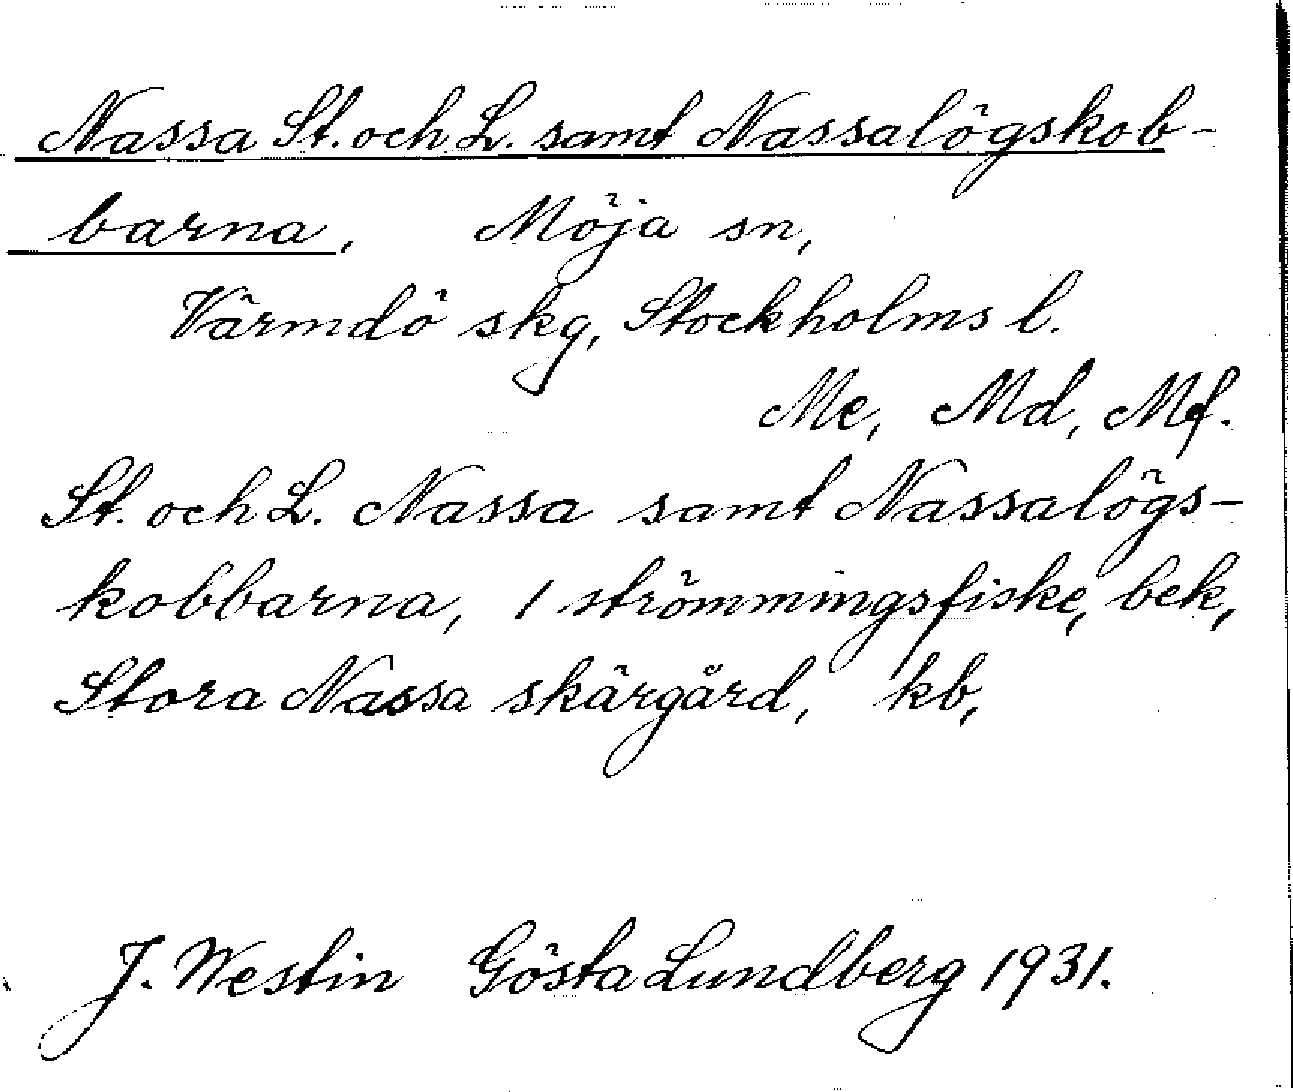 Nassa St. och L. samt Nassalögskob-
barna, Möja sn,
Värmdö skg, Stockholms l.
Me, Md, Mf.
St. och L. Nassa samt Nassalögs-
kobbarna, 1 strömmingsfiske, bek,
Stora Nassa skärgård, kb,
J. Westin Gösta Lundberg 1931.